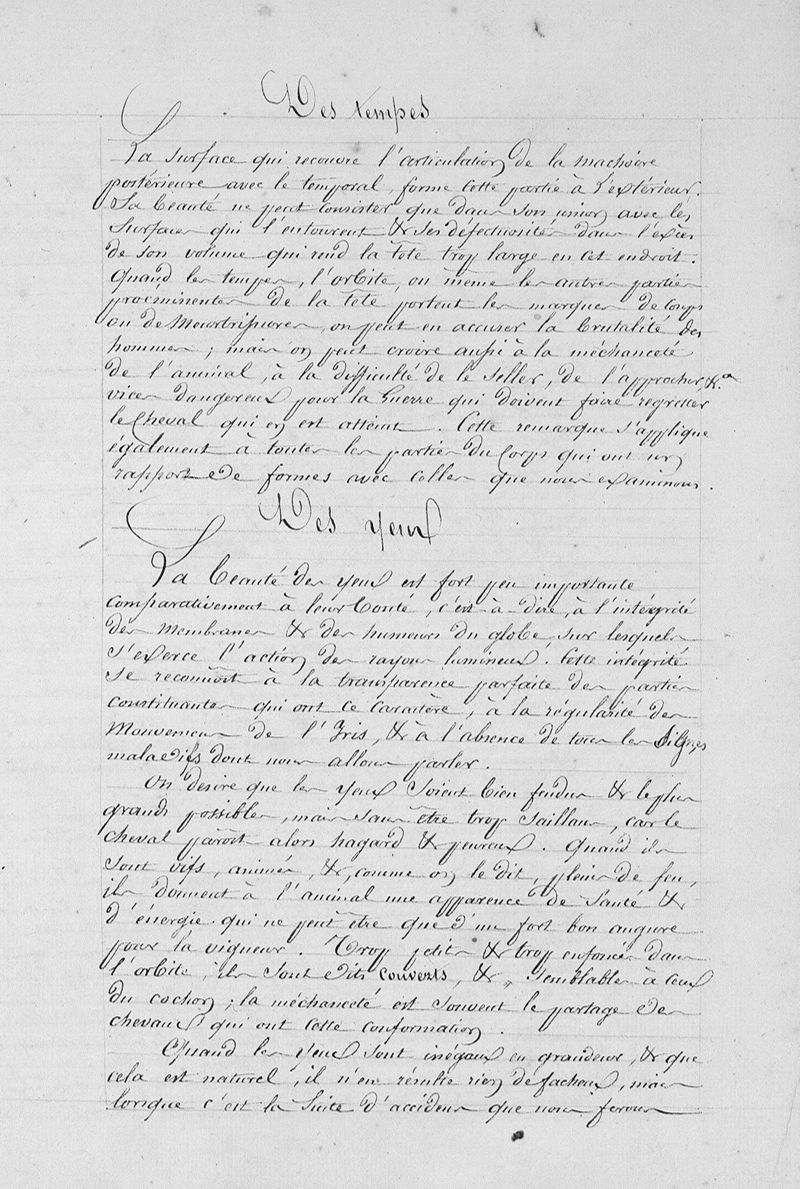 Des tempes
La surface qui recouvre l'articulation de la machoire
postérieure avec le temporal, forme cette partie à l'extérieur.
Sa beauté ne peut consister que dans son union avec les
surfaces qui l'entourent & ses défectuosités dans l'excès
de son volume qui rend la tête trop large en cet endroit.
Quand les tempes, l'orbite, ou même les autres parties
proéminentes de la tête portent les marques de coups
ou de Meurtrissures, on peut en accuser la brutalité des
hommes ; mais on peut croire aussi à la méchanceté
de l'animal, à la difficulté de le seller, de l'approcher, &.a
vices dangereux pour la Guerre qui doivent faire regretter
le Cheval qui en est atteint. Cette remarque s'applique
également à toutes les parties du Corps qui ont un
rapport de formes avec celles que nous examinons.
Des yeux
La beauté des yeux est fort peu importante
comparativement à leur bonté, c'est-à-dire, à l'intégrité
des Membranes & des humeurs du globe, sur lesquels
s'exerce l'action des rayons lumineux. Cette intégrité
se reconnoit à la transparence parfaite des parties
constituantes qui ont ce caractère, à la régularité des
Mouvemens de l'Iris, & à l'absence de tous les Signes
maladifs dont nous allons parler.
On désire que les yeux soient bien fendus & le plus
grands possibles, mais sans être trop saillans, car le
cheval paroit alors hagard & peureux. Quand ils
sont vifs, animés, &, comme on le dit, pleins de feu,
ils donnent à l'animal une apparence de Santé &
d'énergie qui ne peut être que d'un fort bon augure
pour la vigueur. Trop petits & trop enfoncés dans
l'orbite, ils sont dits couverts, & semblables à ceux
du cochon ; la méchanceté est souvent le partage des
chevaux qui ont cette conformation.
Quand les yeux sont inégaux en grandeur, & que
cela est naturel, il n'en résulte rien de facheux, mais
lorsque c'est la suite d'accidens que nous ferons